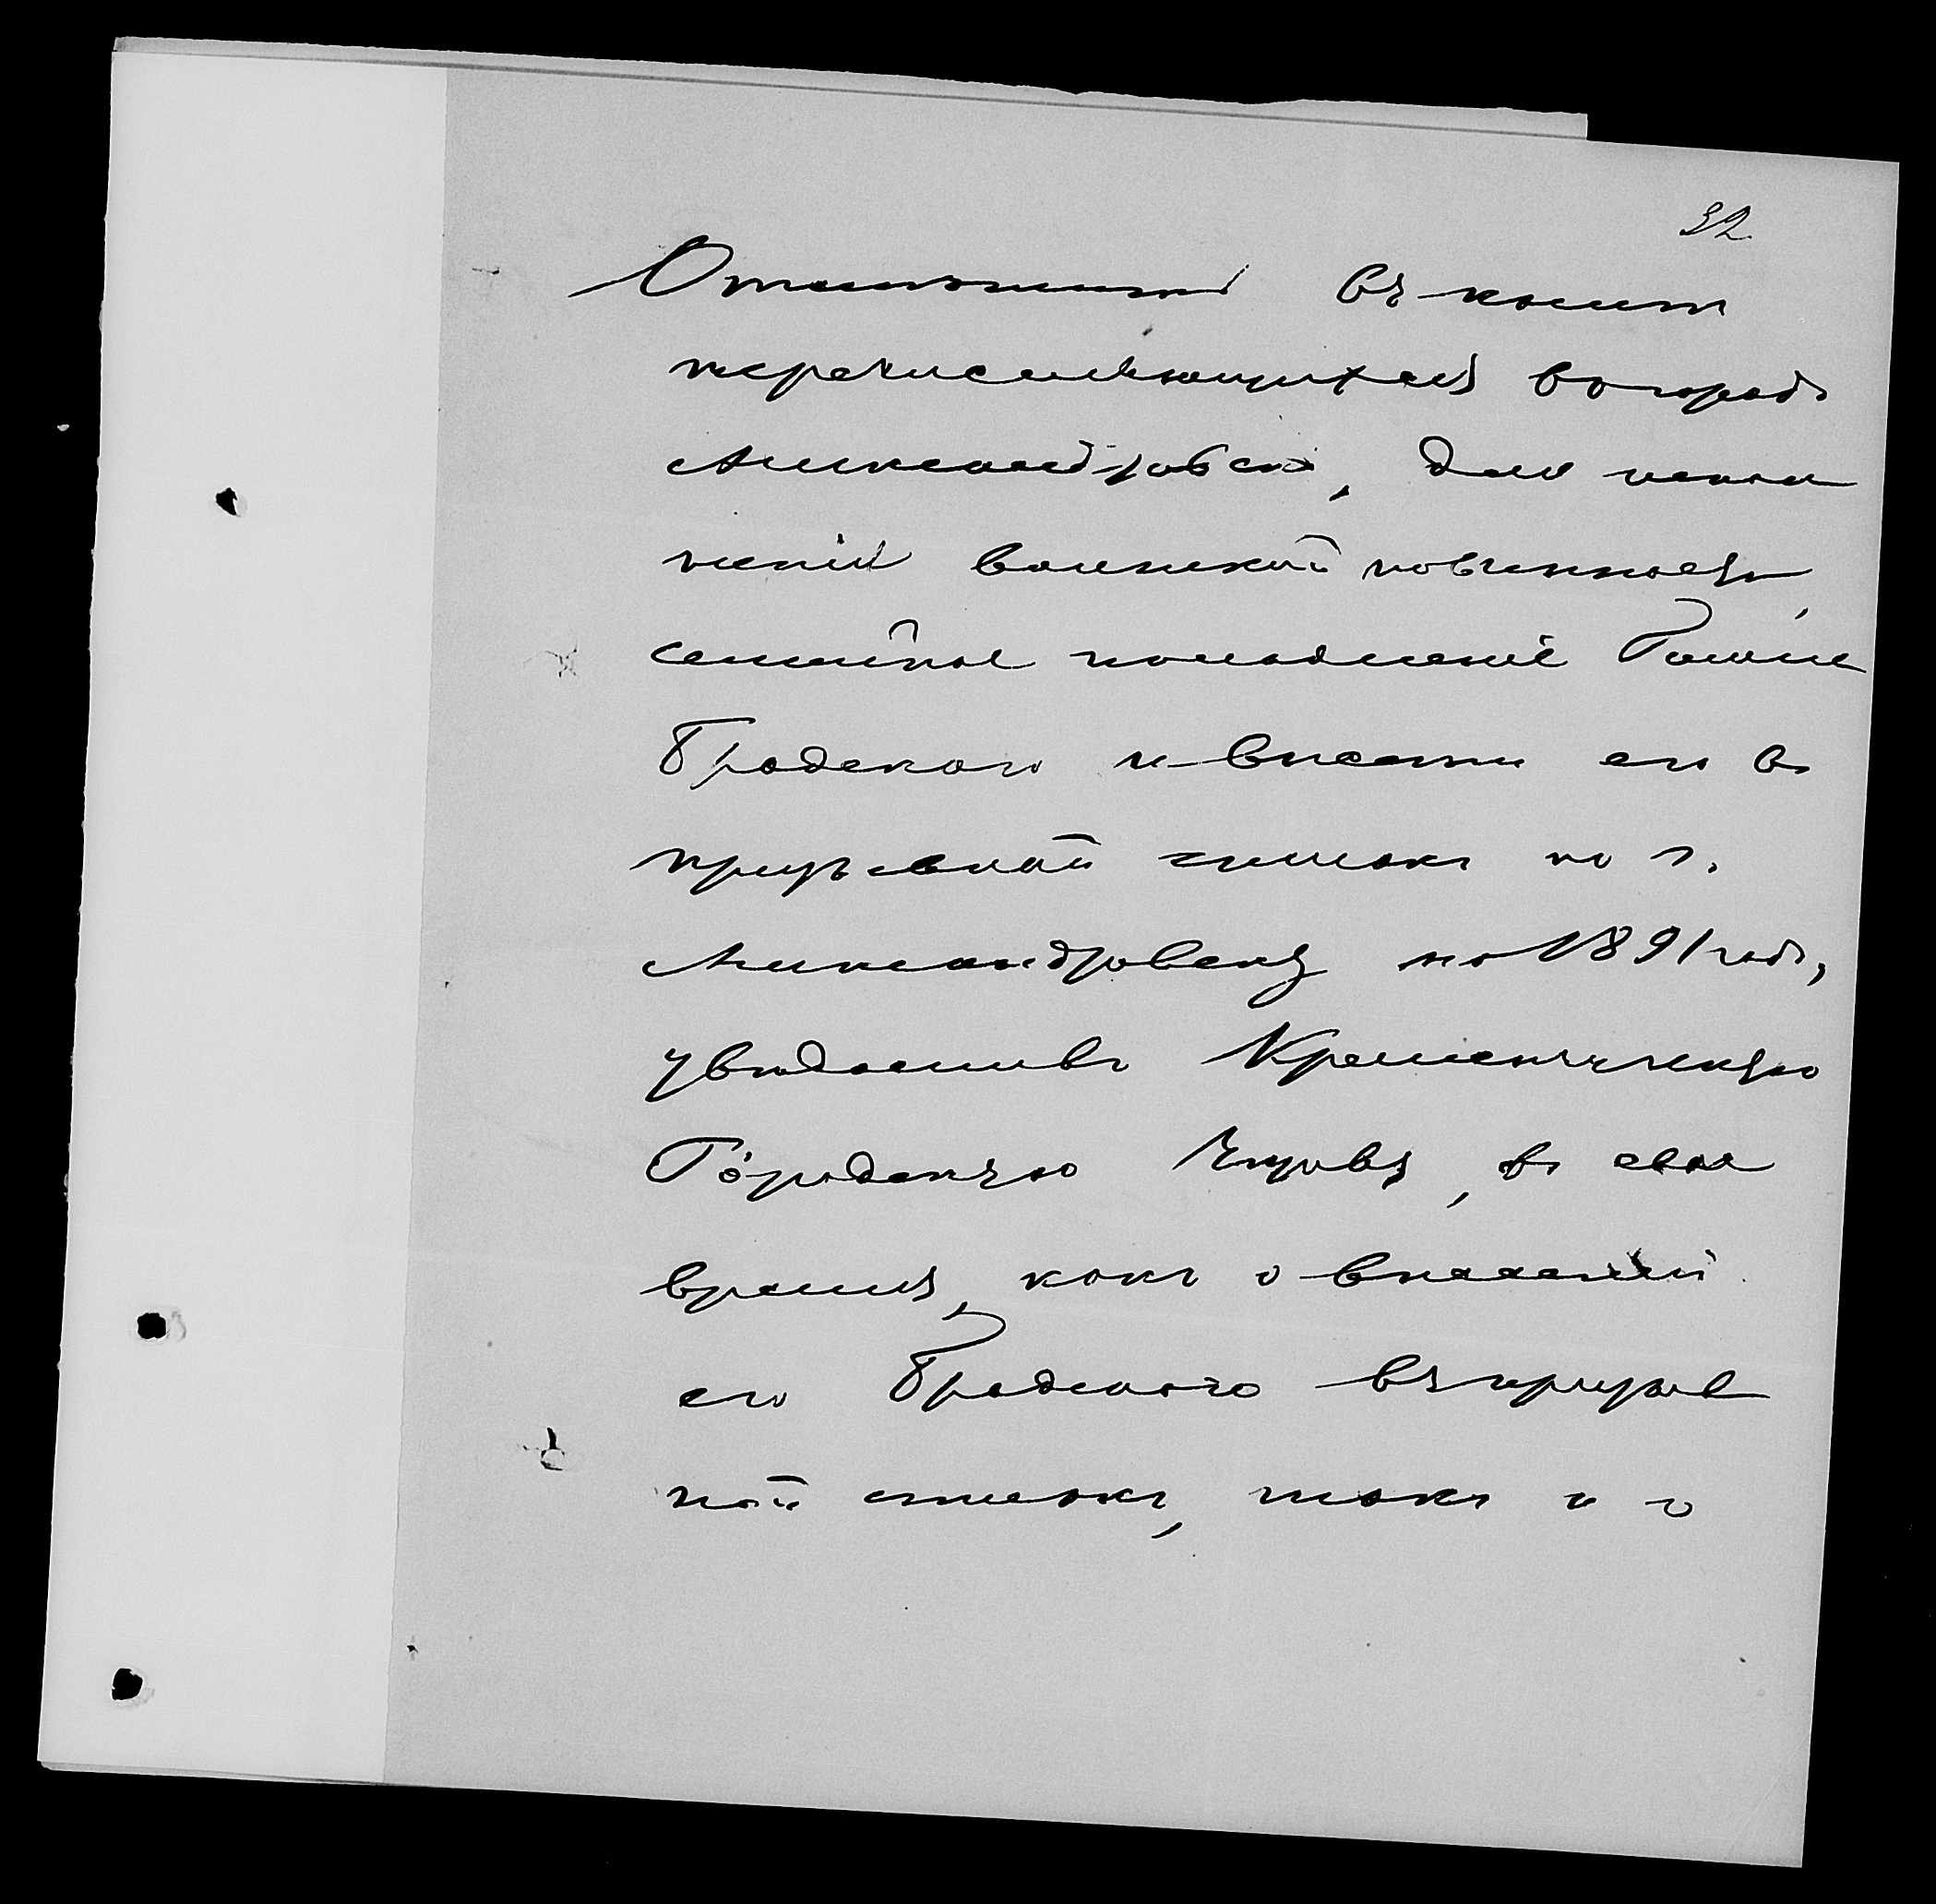 32
въ книгѣ
перечисляющихся въ городъ
Александровскъ, для испол
ненія воинской повинности,
семейное положеніе
Бродскаго и внести его въ
призывной списокъ по г.
Александровску на 1891 годъ,
увѣдомивъ Кременчугскую
Городскую Управу, въ свое
время, какъ о внесеніи
его Бродскаго въ призыв
ной списокъ, такъ и о